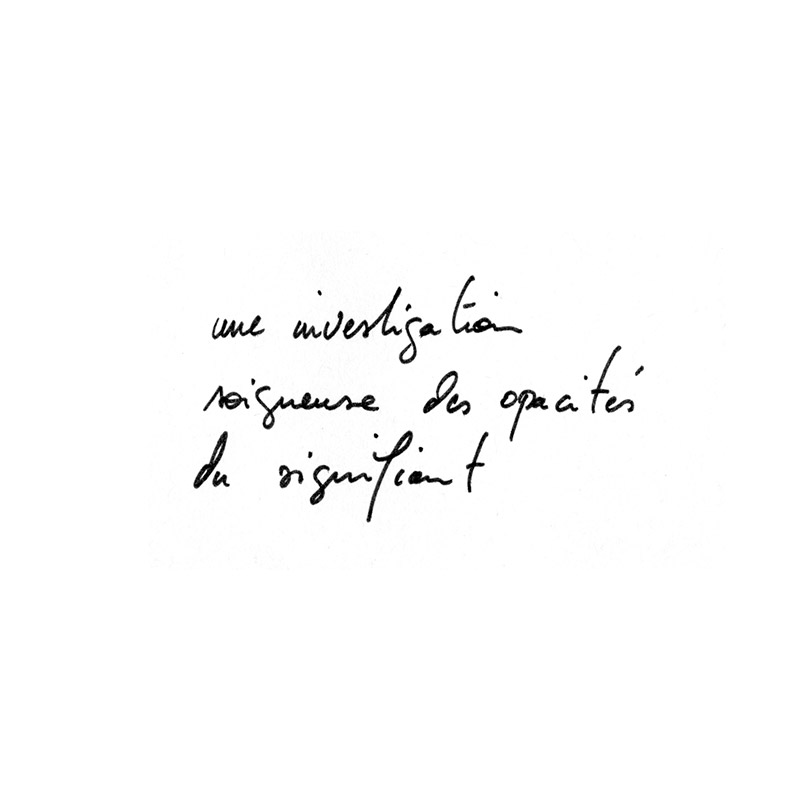 une investigation
soigneuse des opacités
du signifiant